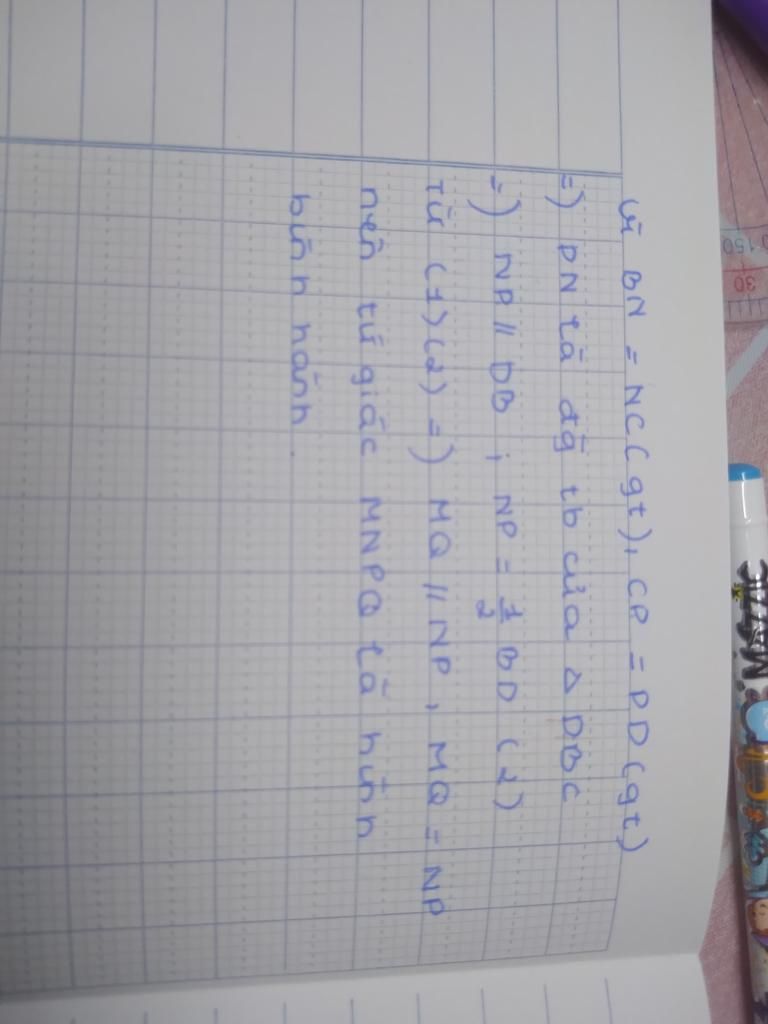 Vì BN = NC (gt), CP = PD (gt)
=) PN là đg tb của Δ DBC
=) NP // DB ; NP = 1/2 BD (2)
Từ (1) (2) =) MQ // NP, MQ = NP
nên tứ giác MNPQ là hình
bình hành.
150
30
MAZZIC